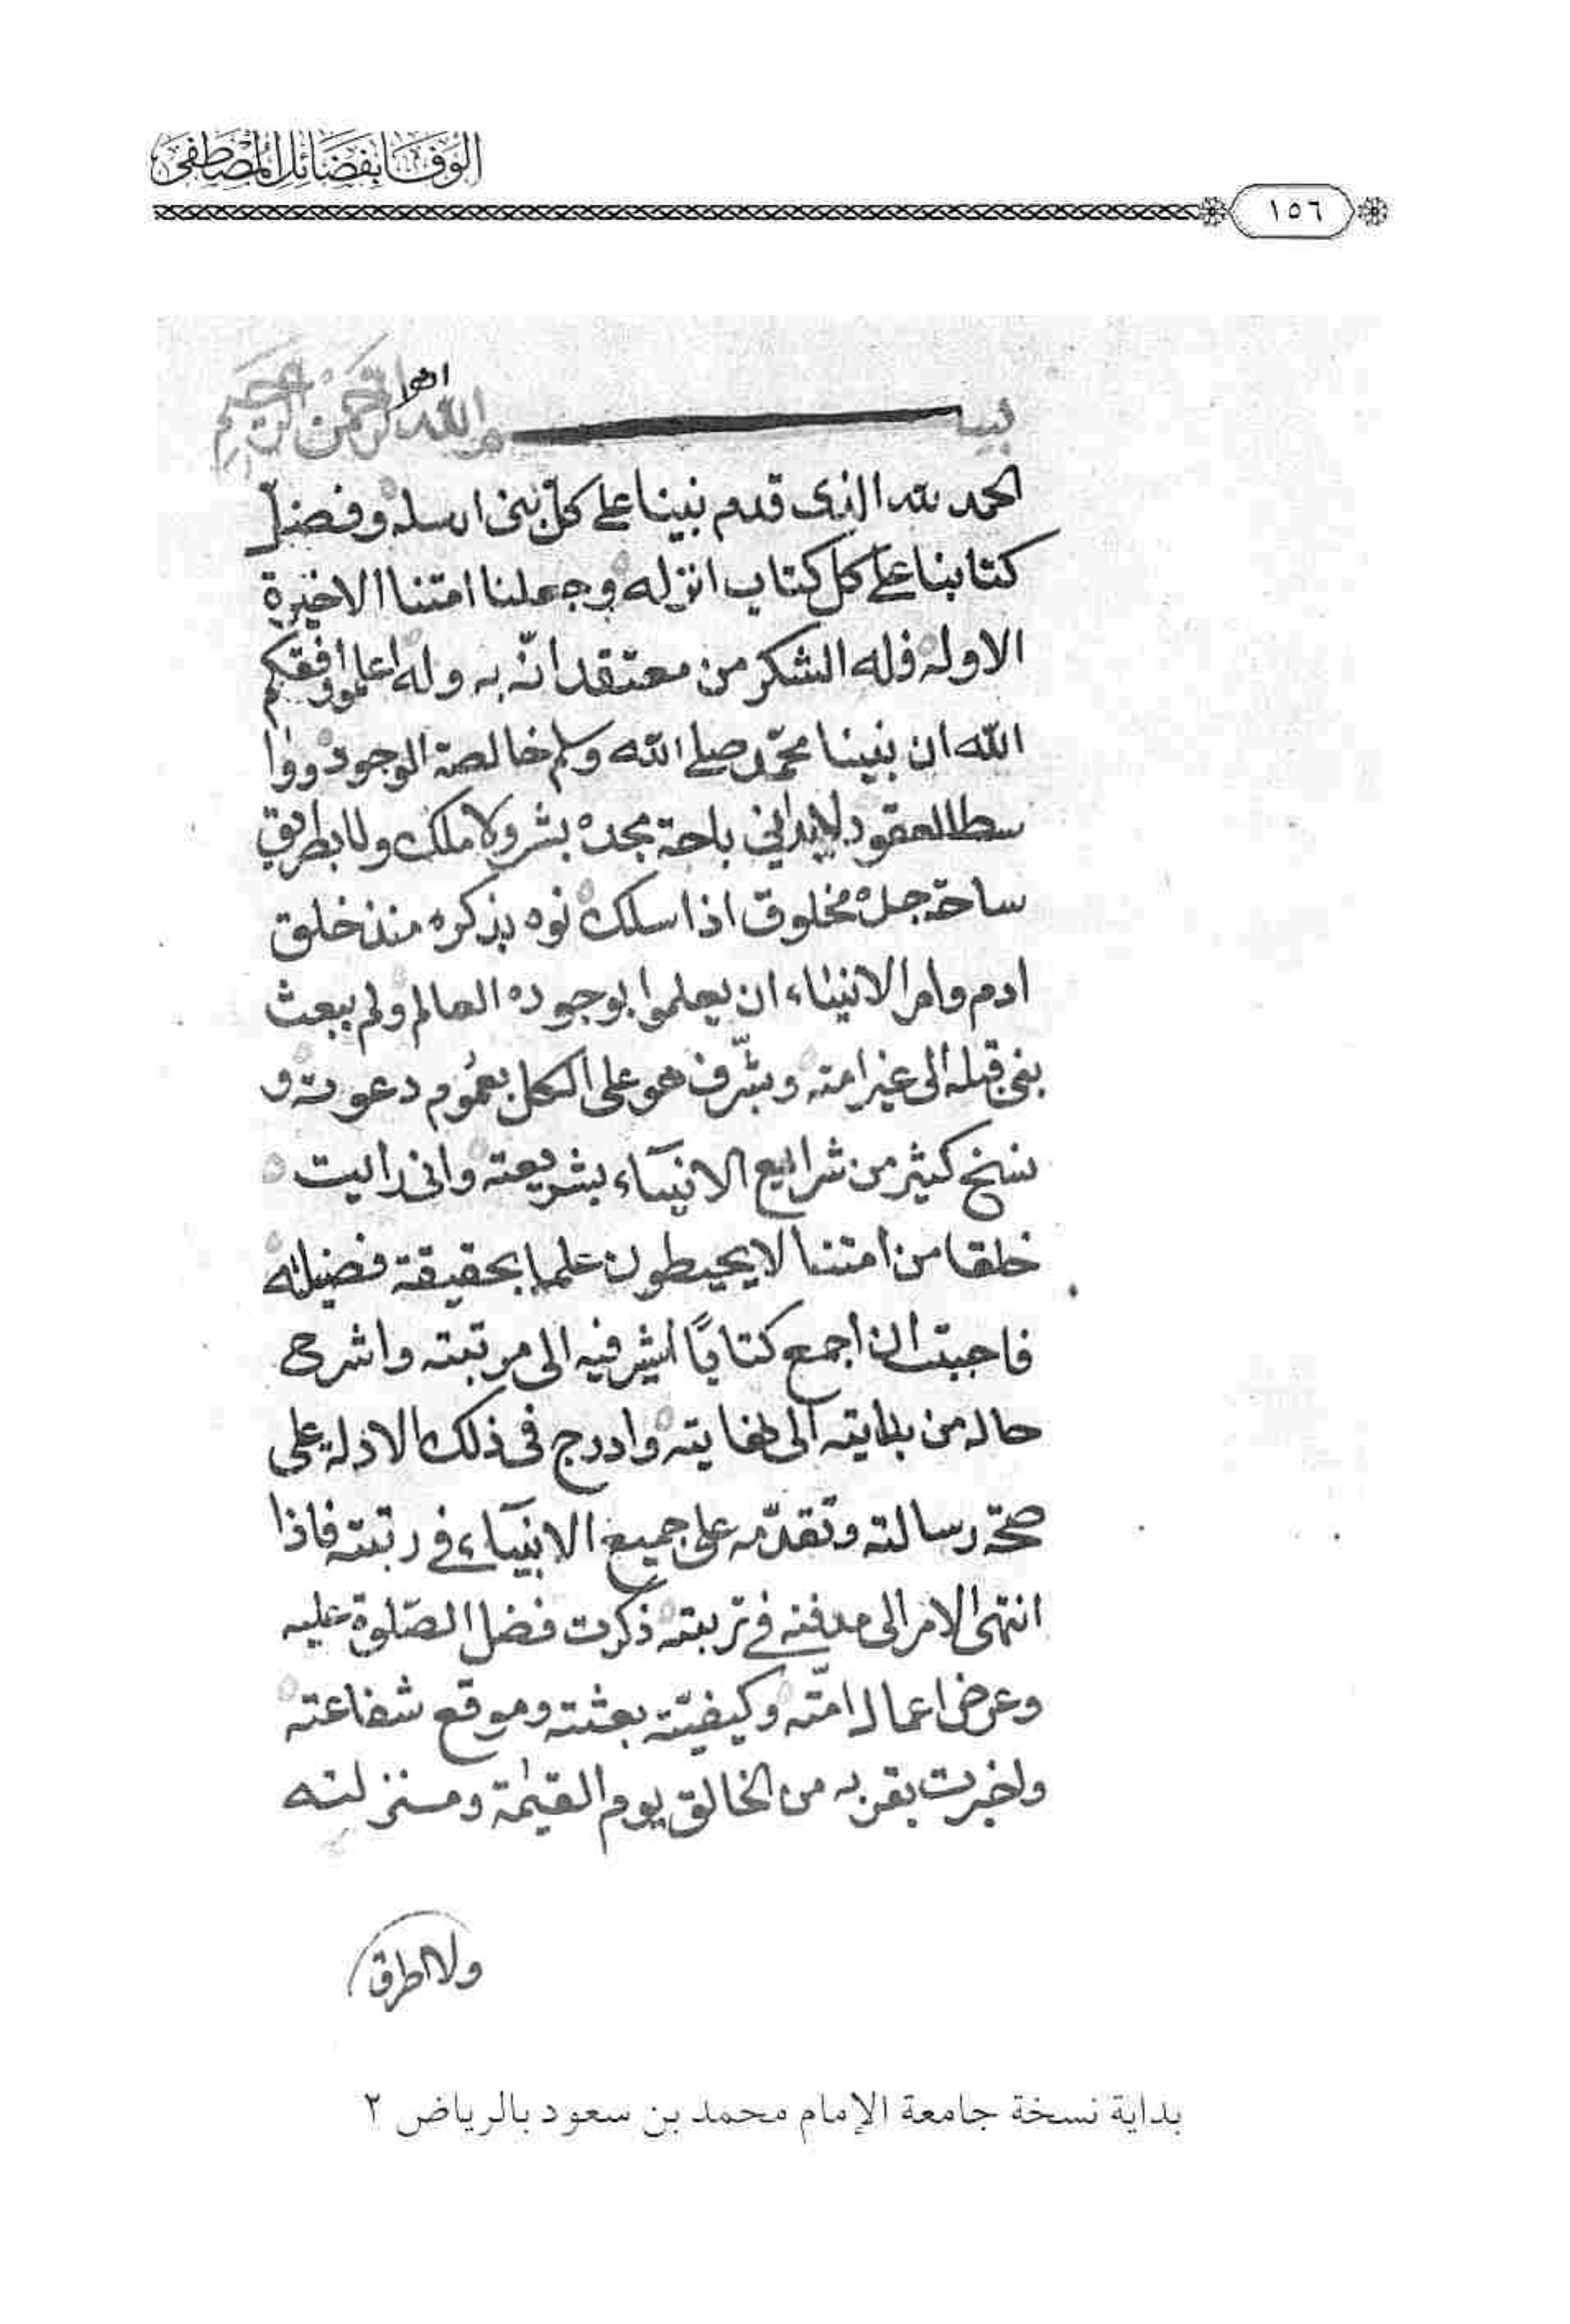 الوفا بفضائل المصطفى
١٥٦
بسم الله الرحمن الرحيم
الحمد لله الذى قدم نبينا على كل نبى ارسله وفضل
كتابنا على كل كتاب انزله وجعلنا امتنا الاخيرة
الاوله فله الشكر من معتقد انّه به وله اعلموا وفقكم
الله ان نبينا محمّد صلى الله وسلم خالصة الوجود ووا
سطا العقود لايدانى باحة مجده بشر ولا ملك ولا يطريق
ساحة جله مخلوق اذا سلك نوه بذكره منذ خلق
ادم وامر الانبياء ان يعلموا بوجوده العالم ولم يبعث
نبى قبله الى غير امته وشّرف هو على الكل بعُموم دعوته و
نسخ كثير من شرايع الانبيآء بشريعته وانى رايت
خلقا من امتنا لا يحيطون علما بحقيقة فضيلته
فاحببت ان اجمع كتابًا اشير فيه الى مرتبته واشرح
حاله من بدايته الى نهايته وادرج فى ذلك الادلة على
صحّة رسالته وتقدّمه على جميع الانبيآء فى رتبته فاذا
انتهى الامر الى مدفنه فى تربته ذكرت فضل الصّلوة عليه
وعرض اعمال امّته وكيفيّة بعثته وموقع شفاعته
واخبرت بقربه من الخالق يوم القيٰمة ومنزلته
ولا اطرق
بداية نسخة جامعة الإمام محمد بن سعود بالرياض ٢